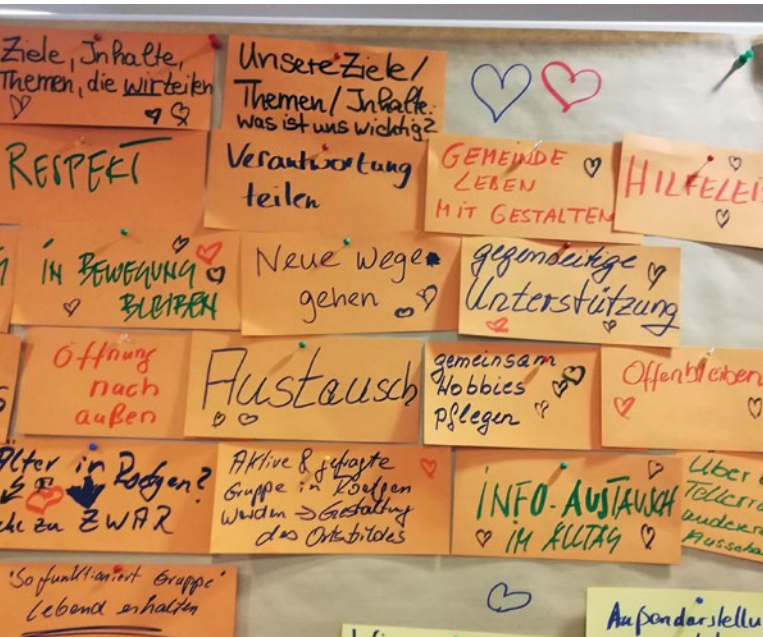 Ziele, Inhalte,
Themen, die wir teilen
Unsere Ziele/
Themen/Inhalte:
was ist uns wichtig?
RESPEKT
Verantwortung
teilen
GEMEINDE
LEBEN
MIT GESTALTEN
HILFELEIS
IN BEWEGUNG
BLEIBEN
Neue Wege
gehen
gegenseitige
Unterstützung
Öffnung
nach
außen
Austausch
gemeinsam
Hobbies
pflegen
Offenbleiben
Älter in Roetgen?
zu ZWAR
Aktive & gefragte
Gruppe in Roetgen
werden → Gestaltung
des Ortsbildes
INFO-AUSTAUSCH
IM ALLTAG
Über
Tellerra
andere
Ausscha
"So funktioniert Gruppe"
lebend erhalten
Außendarstellu